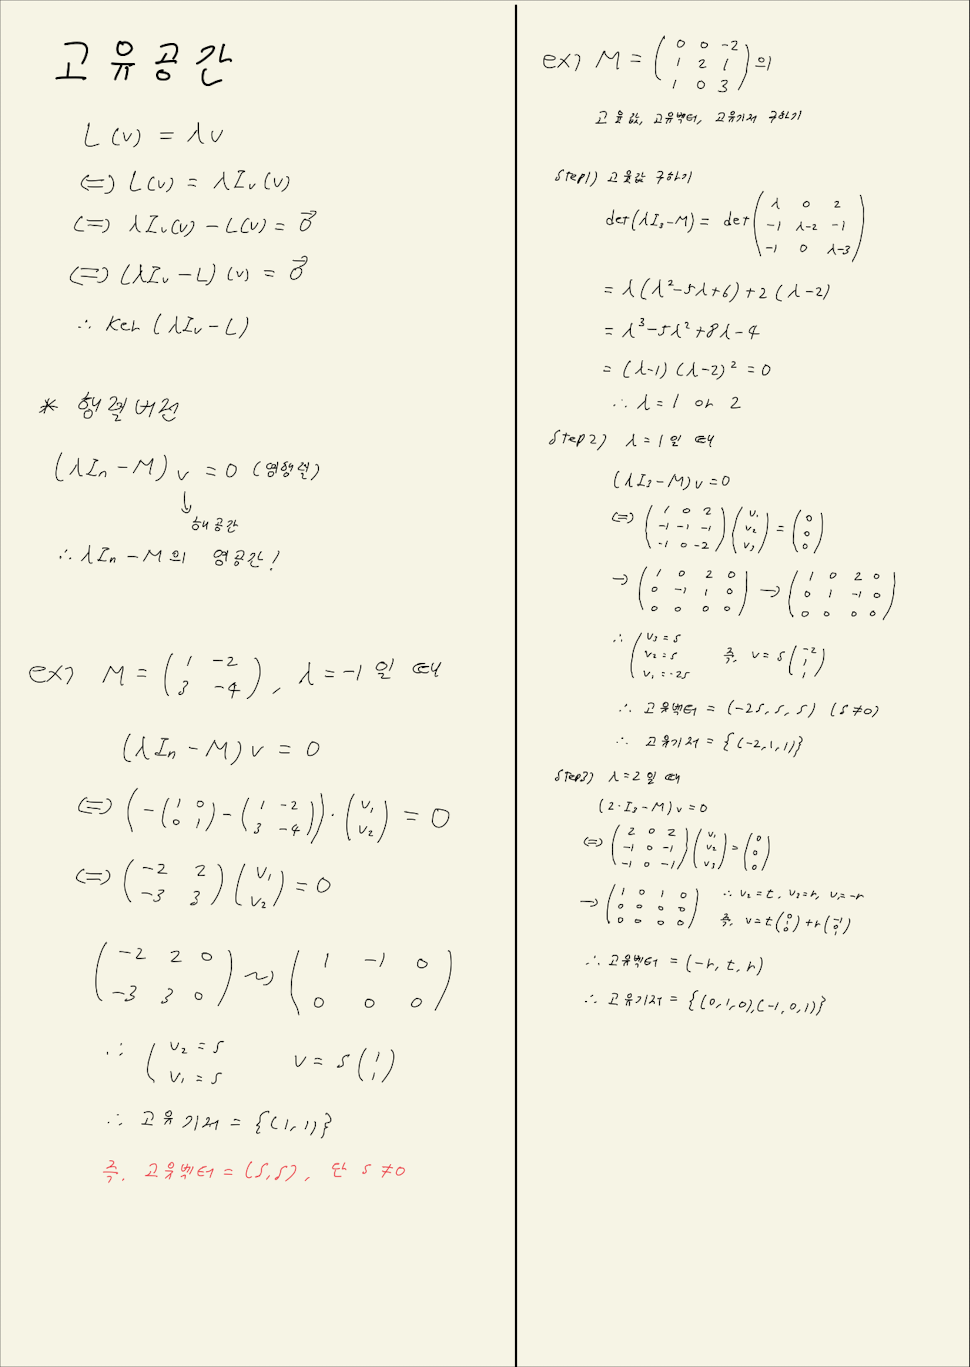 고유공간
L(v) = λv
⟺ L(v) = λI_v(v)
⟺ λI_v(v) - L(v) = 0⃗
⟺ (λI_v - L)(v) = 0⃗
∴ Ker (λI_v - L)
* 행렬버전
(λI_n - M) v = 0 (영행렬)
↓
해공간
∴ λI_n - M의 영공간!
ex) M = (1 -2; 3 -4), λ = -1 일 때
(λI_n - M) v = 0
⟺ (-(1 0; 0 1) - (1 -2; 3 -4)) · (v₁; v₂) = 0
⟺ (-2 2; -3 3)(v₁; v₂) = 0
(-2 2 0; -3 3 0) ~> (1 -1 0; 0 0 0)
∴ (v₂ = s; v₁ = s v = s(1; 1)
∴ 고유기저 = {(1, 1)}
즉, 고유벡터 = (s, s), 단 s ≠ 0
ex) M = (0 0 -2; 1 2 1; 1 0 3)의
고윳값, 고유벡터, 고유기저 구하기
step1) 고윳값 구하기
det(λI₃-M) = det(λ 0 2; -1 λ-2 -1; -1 0 λ-3)
= λ(λ²-5λ+6)+2(λ-2)
= λ³-5λ²+8λ-4
= (λ-1)(λ-2)² = 0
∴ λ = 1 or 2
step2) λ = 1 일 때
(λI₃-M)v = 0
⟺ (1 0 2; -1 -1 -1; -1 0 -2)(v₁; v₂; v₃) = (0; 0; 0)
→ (1 0 2 0; 0 -1 1 0; 0 0 0 0) → (1 0 2 0; 0 1 -1 0; 0 0 0 0)
∴ (v₃ = s; v₂ = s; v₁ = -2s 즉, v = s(-2; 1; 1)
∴ 고유벡터 = (-2s, s, s) (s ≠ 0)
∴ 고유기저 = {(-2, 1, 1)}
step3) λ = 2 일 때
(2·I₃-M)v = 0
⟺ (2 0 2; -1 0 -1; -1 0 -1)(v₁; v₂; v₃) = (0; 0; 0)
→ (1 0 1 0; 0 0 0 0; 0 0 0 0) ∴ v₂ = t, v₂ = r, v₁ = -r
즉, v = t(0; 1; 0) + r(-1; 0; 1)
∴ 고유벡터 = (-r, t, r)
∴ 고유기저 = {(0, 1, 0), (-1, 0, 1)}